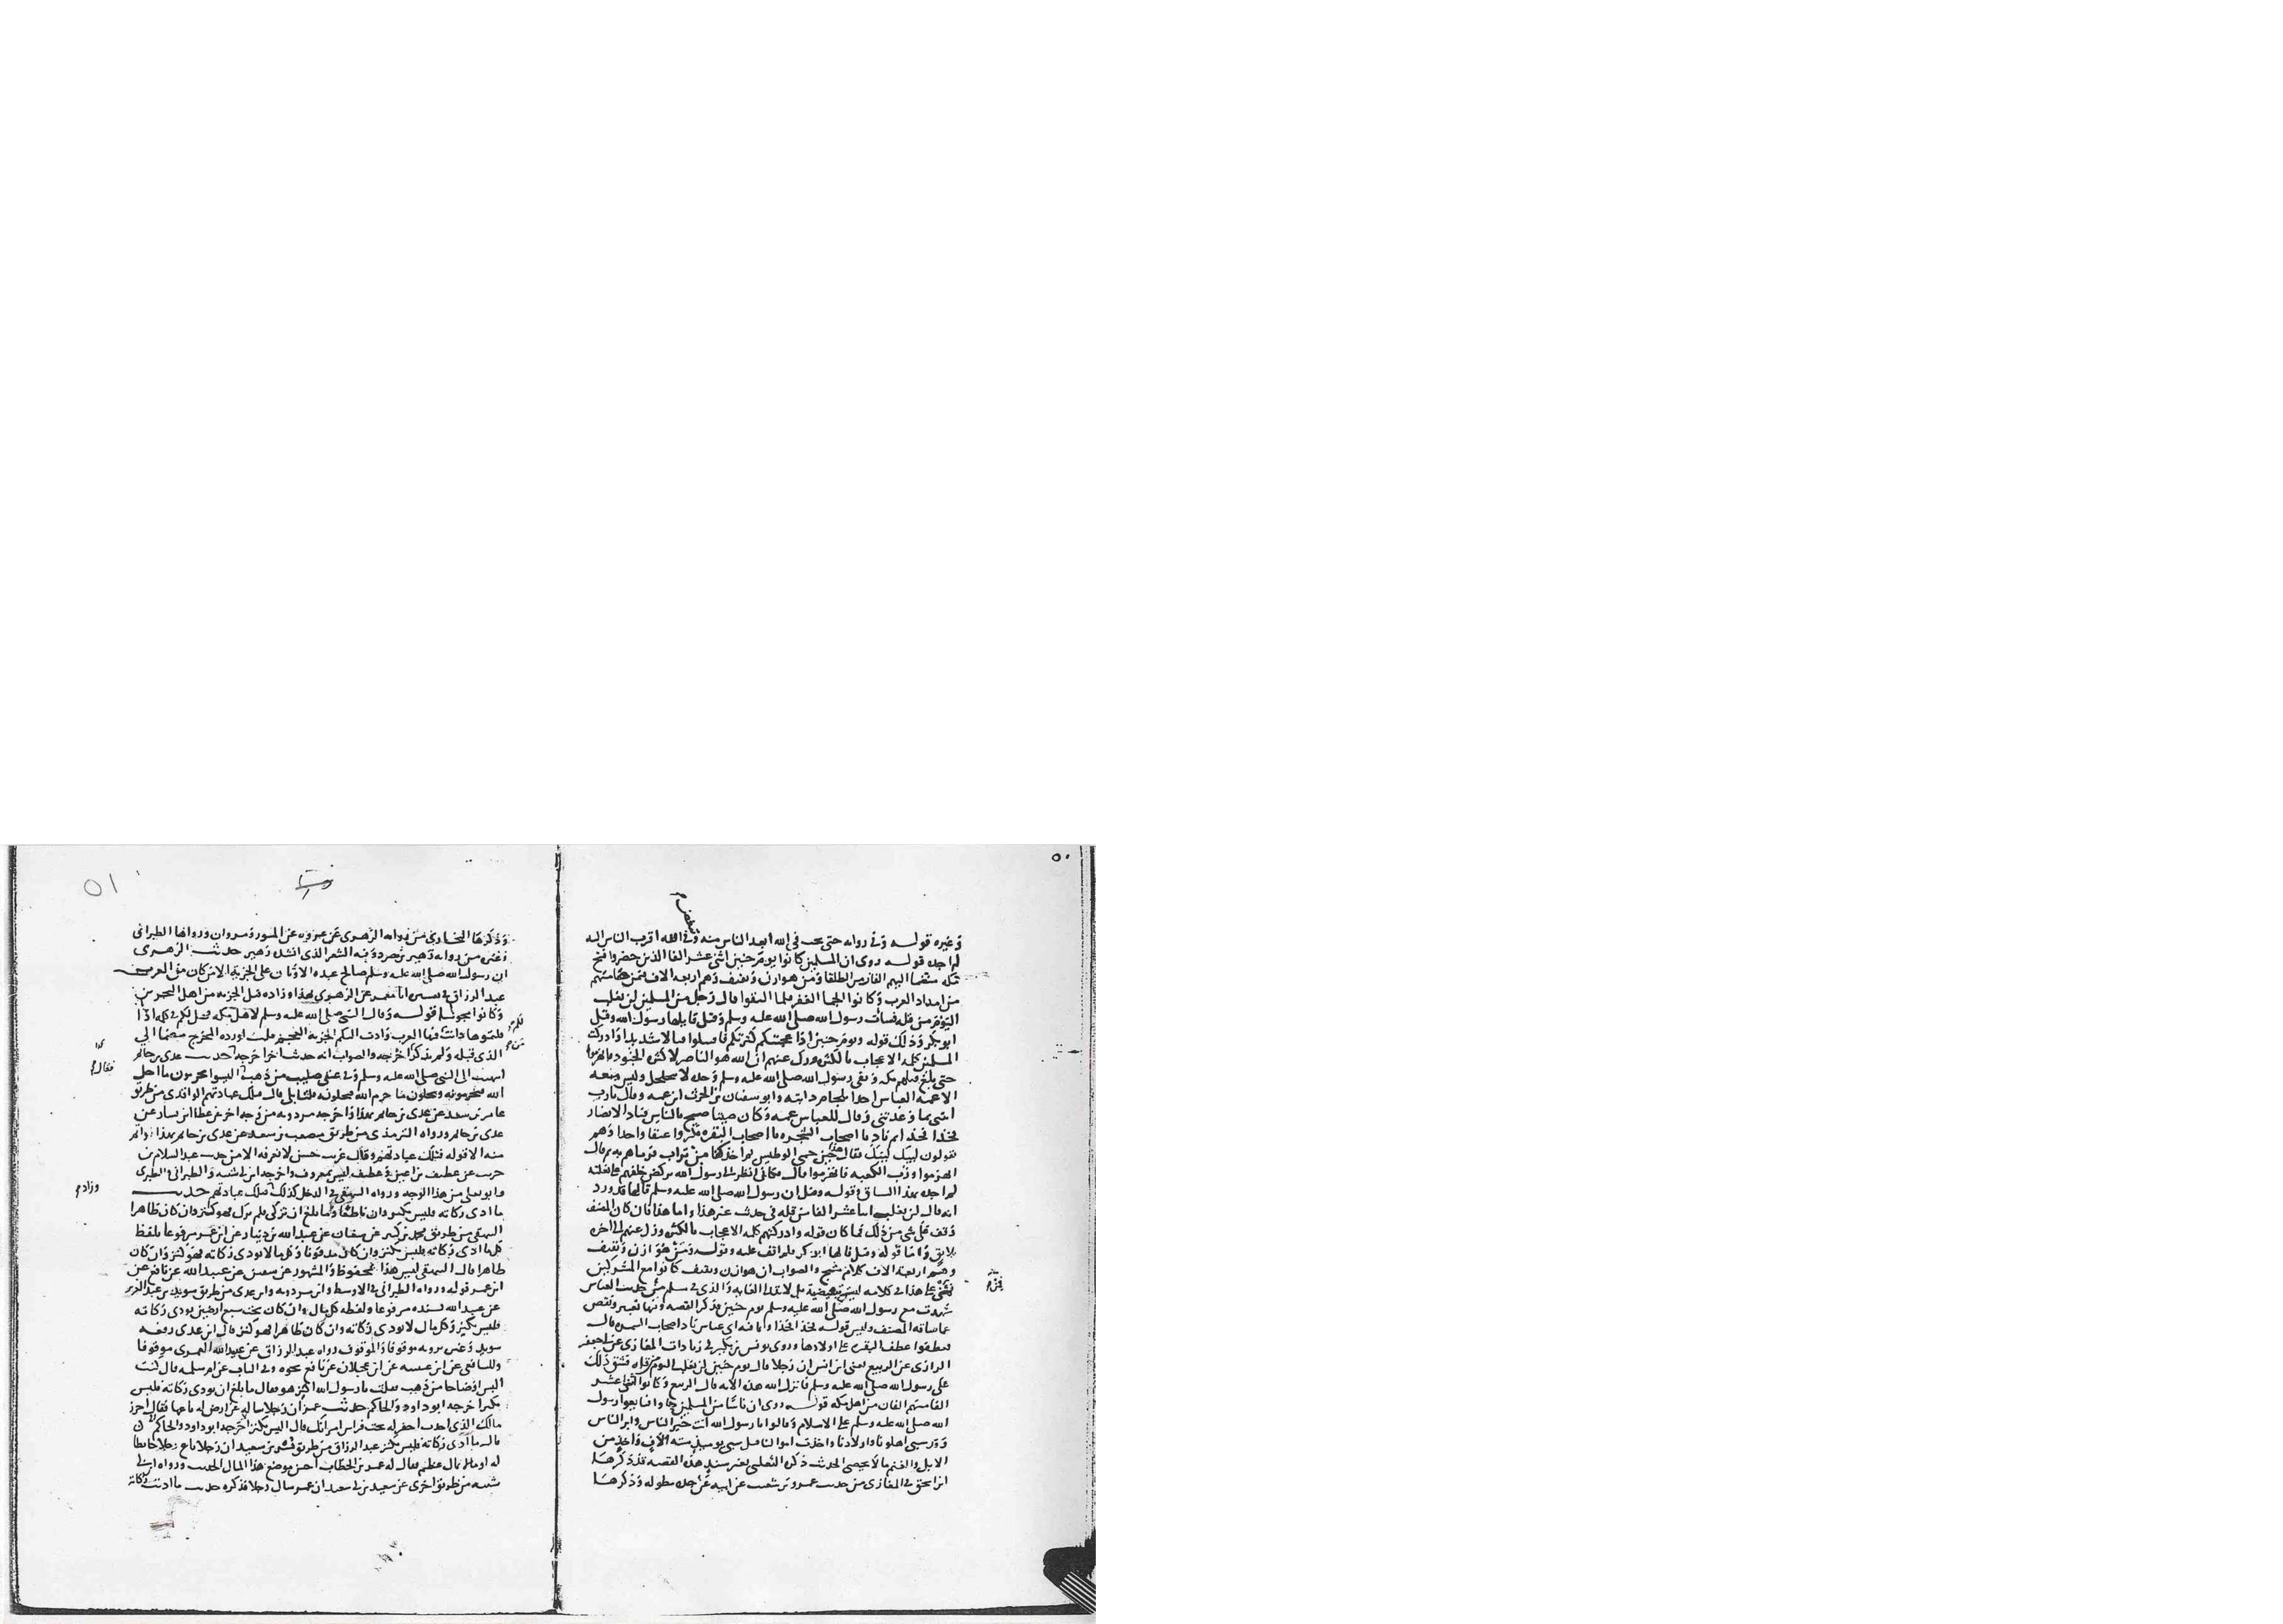 ٥٠
وغيره قوله وفي رواية حتى يحب في الله ابعد الناس منه اقرب الناس اليه
لم اجده قوله روى ان المسلمين كانوا يوم حنين اثنى عشر الفا الذين حضروا فتح
مكة منضما اليهم الفان من الطلقا ومن هوازن وثقيف وهم اربعة الاف فيمن
من امداد العرب وكانوا الجما الغفير فلما التقوا قال رجل من المسلمين لن نغلب
اليوم من قلة فساءت رسول الله صلى الله عليه وسلم وقيل قايلها رسول الله وقيل
ابو بكر وذلك قوله ويوم حنين اذ اعجبتكم كثرتكم فاقتتلوا قتالا شديدا وادركت
المسلمين كلمة الاعجاب بالكثرة وزل عنهم ان الله هو الناصر لا كثرة الجنود فانهزموا
حتى بلغ فلهم مكة وبقى رسول الله صلى الله عليه وسلم وحده لا يتحلحل وليس معه
الا عمه العباس اخذا بلجام دابته وابو سفيان بن الحرث ابن عمه وقال يارب
ائتنى بما وعدتنى وقال للعباس عمه وكان صيتا صيح بالناس فناد الانصار
فخذا فخذا ثم ناد يا اصحاب الشجرة يا اصحاب البقرة فكروا عنقا واحدا وهم
يقولون لبيك لبيك فقال حين حمى الوطيس ثم اخذ كفا من تراب فرماهم به ثم قال
انهزموا ورب الكعبة فانهزموا قال فكانى انظر الى رسول الله يركض خلفهم على بغلته
لم اجده بهذا السياق قوله وقيل ان رسول الله صلى الله عليه وسلم قالها قد ورد
انه قال لن يغلب اثنا عشر الفا من قلة في حديث غير هذا واما هذا فان كان المصنف
وقف على شى من ذلك فما كان قوله وادركتهم كلمة الاعجاب بالكثرة وزل عنهم الى اخره
بلايق واما قوله وقيل قالها ابو بكر فلم اقف عليه وقوله ومن هوازن وثقيف
وهم اربعة الاف كلام والصواب ان هوازن وثقيف كانوا مع المشركين
على هذا في كلامه ليست تبعيضية بل لابتدا الغاية والذى في مسلم من حديث العباس
شهدت مع رسول الله صلى الله عليه وسلم يوم حنين فذكر القصة وفيها تغيير ونقص
عما ساقه المصنف وليس قوله فخذا فخذا وانما فيه اى عباس ناد اصحاب السمرة قال
فعطفوا عطف البقر على اولادها وروى يونس بن بكير في زيادات المغازى عن ابى جعفر
الرازى عن الربيع يعنى ابن انس ان رجلا قال يوم حنين لن نغلب اليوم من قلة فشق ذلك
على رسول الله صلى الله عليه وسلم فانزل الله هذه الاية قال الربيع وكانوا اثنى عشر
الفا منهم الفان من اهل مكة قوله وروى ان ناسا من المسلمين جاوا فبايعوا رسول
الله صلى الله عليه وسلم على الاسلام وقالوا يا رسول الله انت خير الناس وابر الناس
وقد سبى اهلونا واولادنا واخذت اموالنا قيل سبى يوميذ ستة الاف واخذ من
الابل والغنم ما لا يحصى الحديث ذكره الثعلبى بغير سند هذه القصة قد ذكرها
ابن اسحق في المغازى من حديث عمرو بن شعيب عن ابيه عن جده مطولة وذكرها
٥١
وذكرها البخارى من رواية الزهرى عن عروة عن المسور ومروان ورواها الطبرانى
وغيره من رواية زهير بن صرد وفيه الشعر الذى انشده زهير حديث الزهرى
ان رسول الله صلى الله عليه وسلم صالح عبدة الاوثان على الجزية الا من كان من العرب
عبد الرزاق في تفسيره انا معمر عن الزهرى بهذا وزاد وقبل الجزية من اهل البحرين
وكانوا مجوسا قوله وقال النبى صلى الله عليه وسلم لاهل مكة هل لكم في كلمة اذا
قلتموها دانت لكم بها العرب وادت اليكم الجزية العجم قلت اورده المخرج مضما الى
الذى قبله ولم يذكر اخرجه والصواب انه حديث اخر اخرجه حديث عدى بن حاتم
انتهيت الى النبى صلى الله عليه وسلم وفي عنقى صليب من ذهب اليسوا يحرمون ما احل
الله فتحرمونه ويحلون ما حرم الله فتحلونه قلت بلى قال فتلك عبادتهم الواقدى من طريق
عامر بن سعد عن عدى بن حاتم بهذا واخرجه ابن مردويه من وجه اخر عن عطا ابن يسار عن
عدى بن حاتم ورواه الترمذى من طريق مصعب بن سعد عن عدى بن حاتم بهذا
منه الا قوله فتلك عبادتهم وقال غريب حسن لا نعرفه الا من حديث عبد السلام بن
حرب عن غطيف بن اعين وغطيف ليس بمعروف واخرجه ابن ابى شيبة والطبرانى والطبرى
وابو يعلى من هذا الوجه ورواه البيهقى في المدخل كذلك فتلك عبادتهم حديث
ما ادى زكاته فليس بكنز وان كان باطنا وما بلغ ان تزكى فلم يزك فهو كنز وان كان ظاهرا
البيهقى من طريق محمد بن كثير عن سفيان عن عبد الله بن دينار عن ابن عمر مرفوعا بلفظ
كل ما ادى زكاته فليس بكنز وان كان مدفونا وكل ما لا يودى زكاته فهو كنز وان كان
ظاهرا قال البيهقى ليس هذا بمحفوظ والمشهور عن سفين عن عبيد الله عن نافع عن
ابن عمر قوله ورواه الطبرانى في الاوسط وابن مردويه وابن عدى من طريق سويد بن عبد العزيز
عن عبيد الله بسنده مرفوعا ولفظه كل مال وان كان تحت سبع ارضين يودى زكاته
فليس بكنز وكل مال لا يودى زكاته وان كان ظاهرا فهو كنز قال ابن عدى رفعه
سويد وغيره يرويه موقوفا والموقوف رواه عبد الرزاق عن عبيد الله العمرى موقوفا
وللشافعى عن ابن عيينة عن ابن عجلان عن نافع نحوه وفي الباب عن ام سلمة قال كنت
البس اوضاحا من ذهب فقلت يا رسول الله اكنز هو فقال ما بلغ ان يودى زكاته فليس
بكنز اخرجه ابو داود والحاكم حديث عمر ان رجلا ساله عن ارض له باعها فقال احرز
مالك الذى اخذت احفر له تحت فراش امراتك قال اليس بكنز اخرجه ابو داود والحاكم
قال ما ادى زكاته فليس بكنز عبد الرزاق من طريق بشر بن سعيد ان رجلا باع رجلا حايطا
له او مالا بمال عظيم فقال له عمر بن الخطاب احسن موضع هذا المال الحديث ورواه ابن ابى
شيبة من طريق اخرى عن سعيد بن ابى سعيد ان عمر سال رجلا فذكره حديث ما اديت زكاته